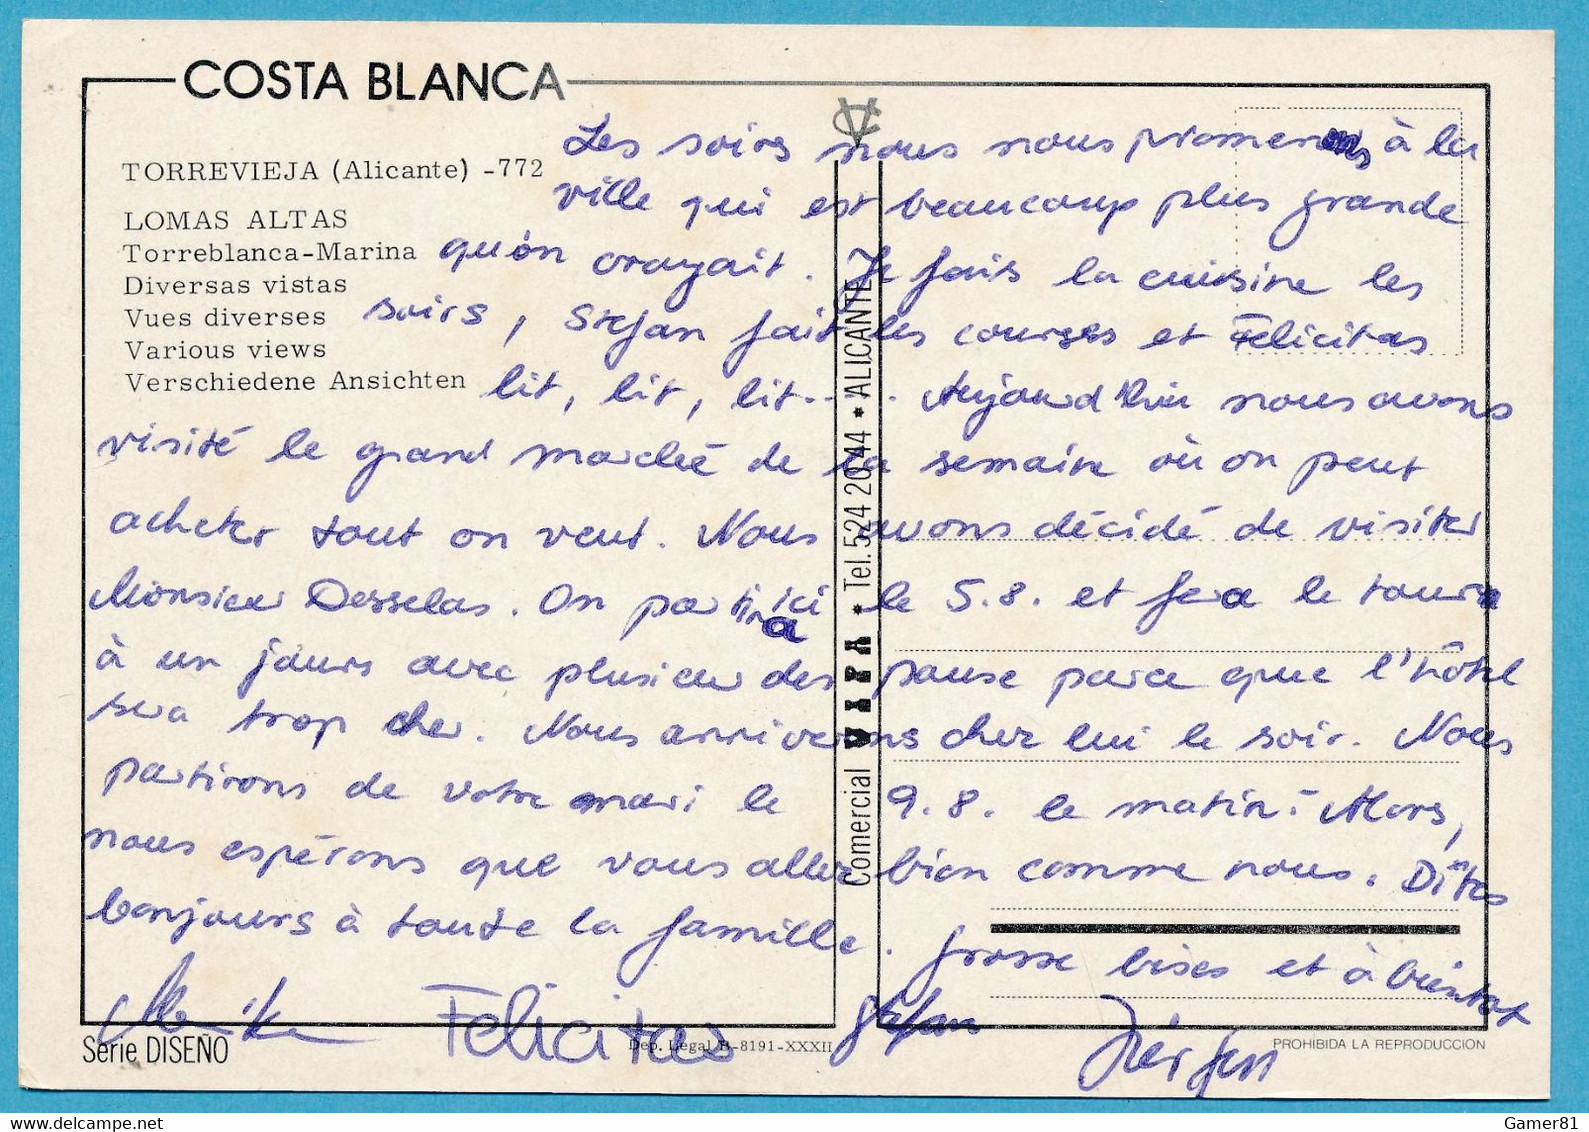 COSTA BLANCA
TORREVIEJA (Alicante) -772
LOMAS ALTAS
Torreblanca-Marina
Diversas vistas
Vues diverses
Various views
Verschiedene Ansichten
Les soirs nous nous promenons à la
ville qui est beaucoup plus grande
qu'on croyait. Je fais la cuisine les
soirs, Stefan fait les courses et Felicitas
lit, lit, lit.... Aujourd'hui nous avons
visité le grand marché de la semaine où on peut
acheter tout on veut. Nous avons décidé de visiter
Monsieur Desselas. On partira ici le 5.8. et fera le tour
à un jours avec plusieur des pause parce que l'hôtel
sera trop cher. Nous arriverons cher lui le soir. Nous
partirons de votre mari le 9.8. le matin. Alors,
nous espérons que vous aller bien comme nous. Dîtes
bonjours à toute la famille. Grosse bises et à bientot
Felicitas Stefan Jürgen
Comercial VIPA * Tel. 524 20 44 * ALICANTE
Serie DISEÑO
Dep. Legal B-8191-XXXII
PROHIBIDA LA REPRODUCCION
Gamer81